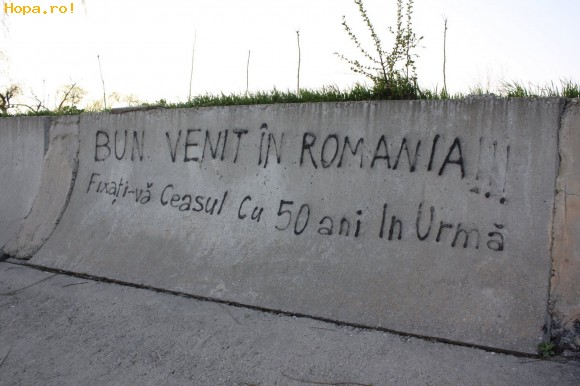 Hopa.ro!
BUN VENIT ÎN ROMANIA!!!
Fixați-vă Ceasul Cu 50 ani In Urmă